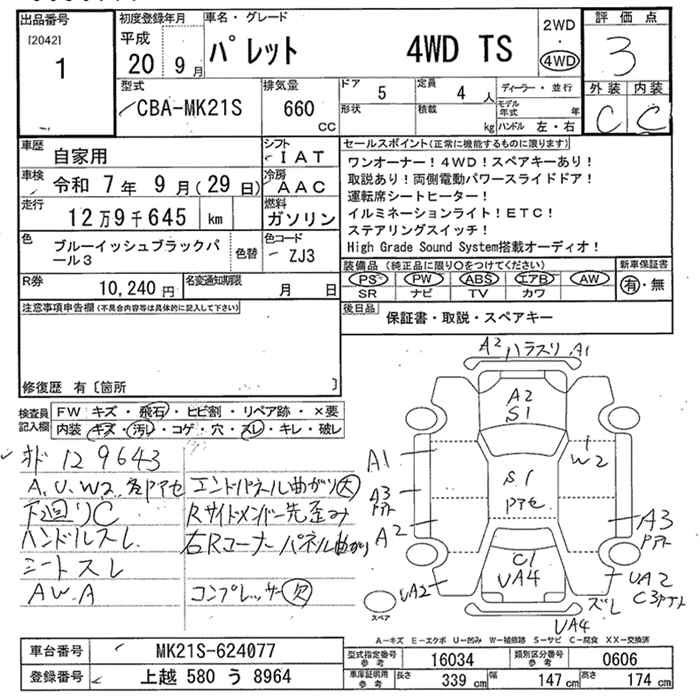 出品番号
[2042]
1
初度登録年月
平成
20 9 月
車名・グレード
パレット 4WD TS
2WD
・
4WD
評価点
3
外装 内装
C C
型式
CBA-MK21S
排気量
660
CC
ドア
5
定員
4 人
形状
積載
kg
ディーラー・並行
モデル年式 年
ハンドル 左・右
車歴
自家用
シフト
IAT
車検
令和 7年 9月(29日)
冷房
AAC
走行
12万9千645 km
燃料
ガソリン
色
ブルーイッシュブラックパール3
色替
色コード
ZJ3
R券
10,240 円
名変通知期限
月 日
セールスポイント(正常に機能するものに限ります)
ワンオーナー!4WD!スペアキーあり!
取説あり!両側電動パワースライドドア!
運転席シートヒーター!
イルミネーションライト!ETC!
ステアリングスイッチ!
High Grade Sound System搭載オーディオ!
装備品(純正品に限り○をつけてください)
PS PW ABS エアB AW
SR ナビ TV カワ
新車保証書
有・無
後日品
保証書・取説・スペアキー
注意事項申告欄(不具合内容等は具体的に記入して下さい)
修復歴 有〔箇所 〕
検査員記入欄
FW キズ・飛石・ヒビ割・リペア跡・×要
内装 キズ・汚レ・コゲ・穴・スレ・キレ・破レ
オド 129643
A、U、W2、各ドアセ
下廻りC
ハンドルスレ
シートスレ
AW.A
エンドパネル曲がり大
Rサイドメンバー先歪み
右Rコーナーパネル曲がり
コンプレッサー欠
A2 ハラスリ A1
A2
S1
A1
W2
S1
A3
A2
A3
C1
UA4
UA2
UA2
ズレ
UA4
スペア
A-キズ E-エクボ U-凹み W-補修跡 S-サビ C-腐食 XX-交換済
車台番号
MK21S-624077
登録番号
上越 580 う 8964
型式指定番号
参考
16034
類別区分番号
参考
0606
車庫証明用
参考
長さ 339 cm
幅 147 cm
高さ 174 cm